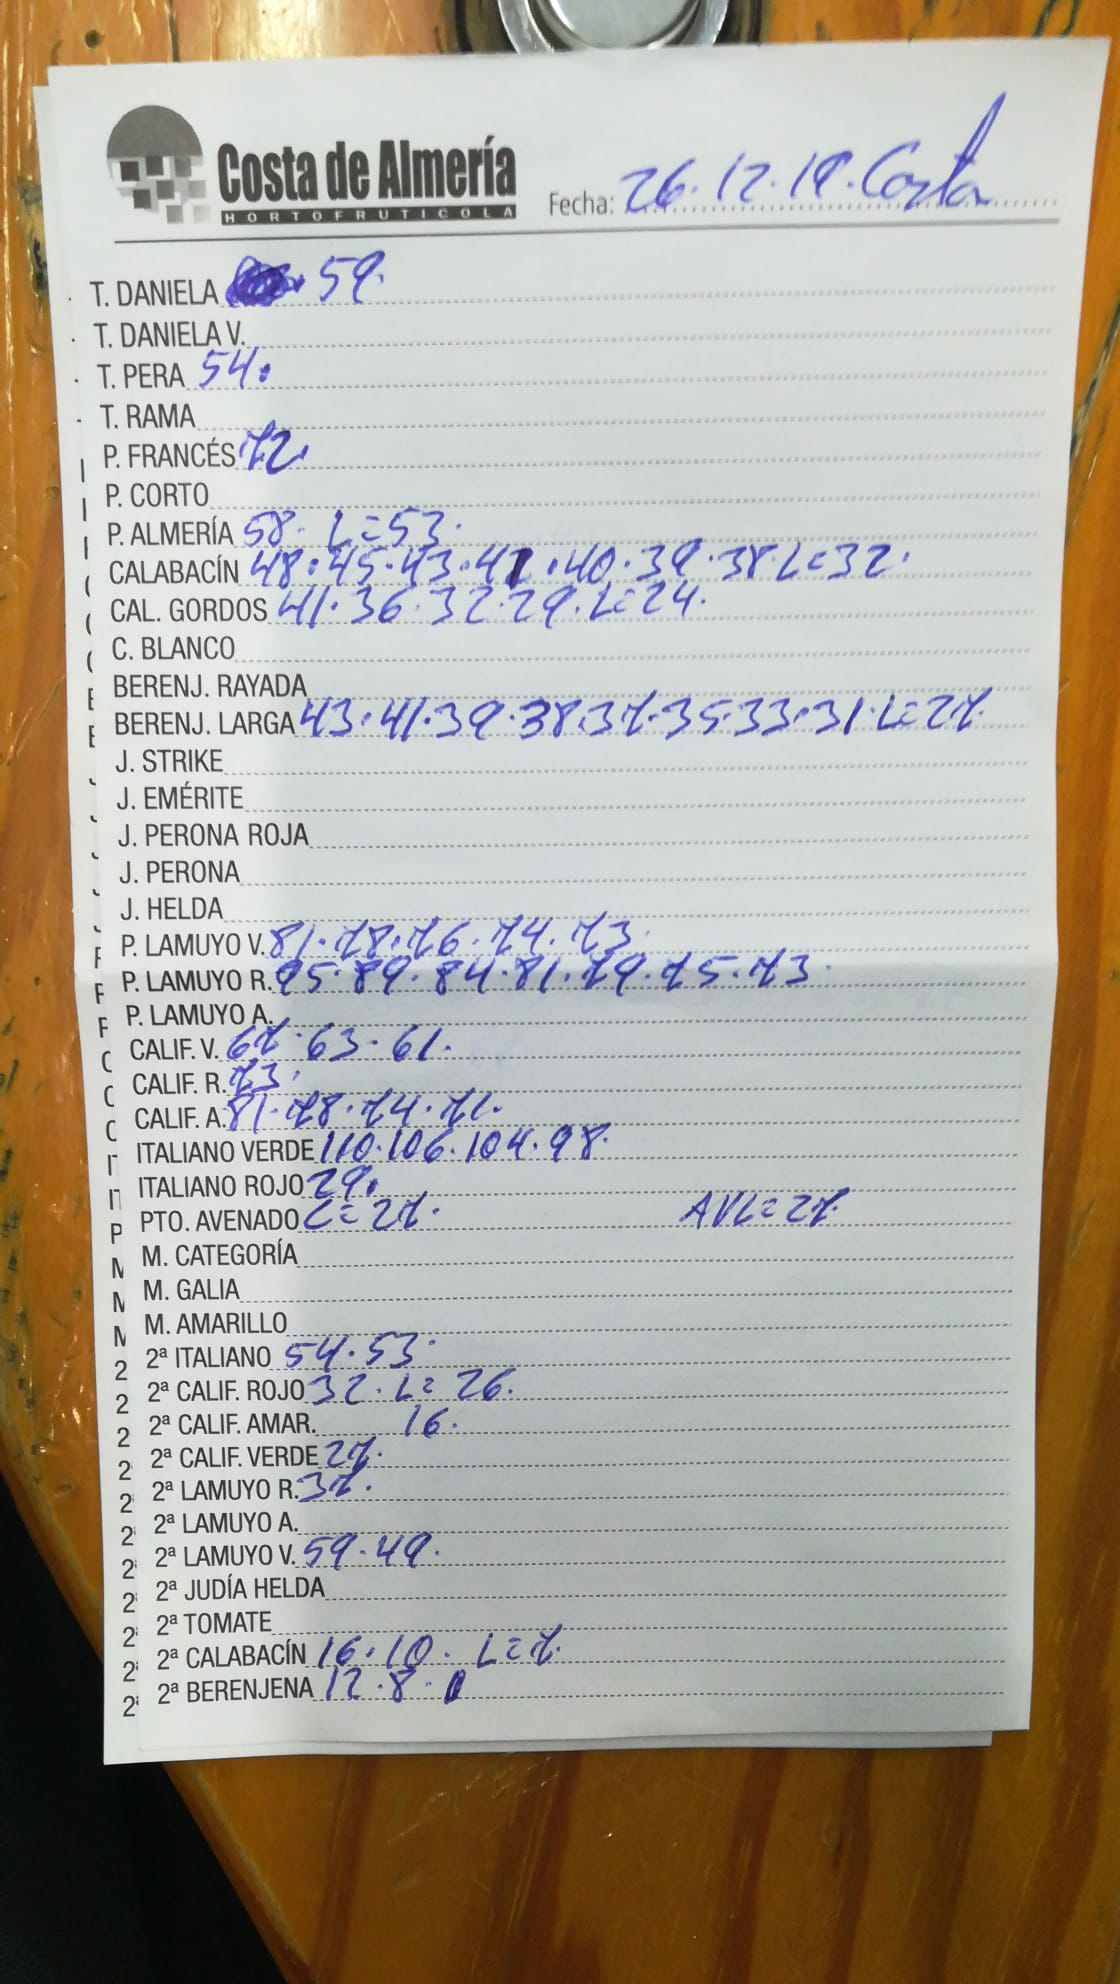 Costa de Almería
HORTOFRUTICOLA
Fecha: 26.12.19. Costa
T. DANIELA 59.
T. DANIELA V.
T. PERA 54.
T. RAMA
P. FRANCÉS 72.
P. CORTO
P. ALMERÍA 58. L=53.
CALABACÍN 48.45.43.41.40.39.38.L=32.
CAL. GORDOS 41.36.32.29.L=24.
C. BLANCO
BERENJ. RAYADA
BERENJ. LARGA 43.41.39.38.37.35.33.31.L=27.
J. STRIKE
J. EMÉRITE
J. PERONA ROJA
J. PERONA
J. HELDA
P. LAMUYO V. 81.78.76.74.73.
P. LAMUYO R. 95.89.84.81.79.75.73.
P. LAMUYO A.
CALIF. V. 67.63.61.
CALIF. R. 73.
CALIF. A. 81.78.74.71.
ITALIANO VERDE 110.106.104.98.
ITALIANO ROJO 29.
PTO. AVENADO L=27. AVL=27.
M. CATEGORÍA
M. GALIA
M. AMARILLO
2ª ITALIANO 54.53.
2ª CALIF. ROJO 32. L=26.
2ª CALIF. AMAR. 16.
2ª CALIF. VERDE 27.
2ª LAMUYO R. 37.
2ª LAMUYO A.
2ª LAMUYO V. 59.49.
2ª JUDÍA HELDA
2ª TOMATE
2ª CALABACÍN 16.10. L=7.
2ª BERENJENA 12.8.